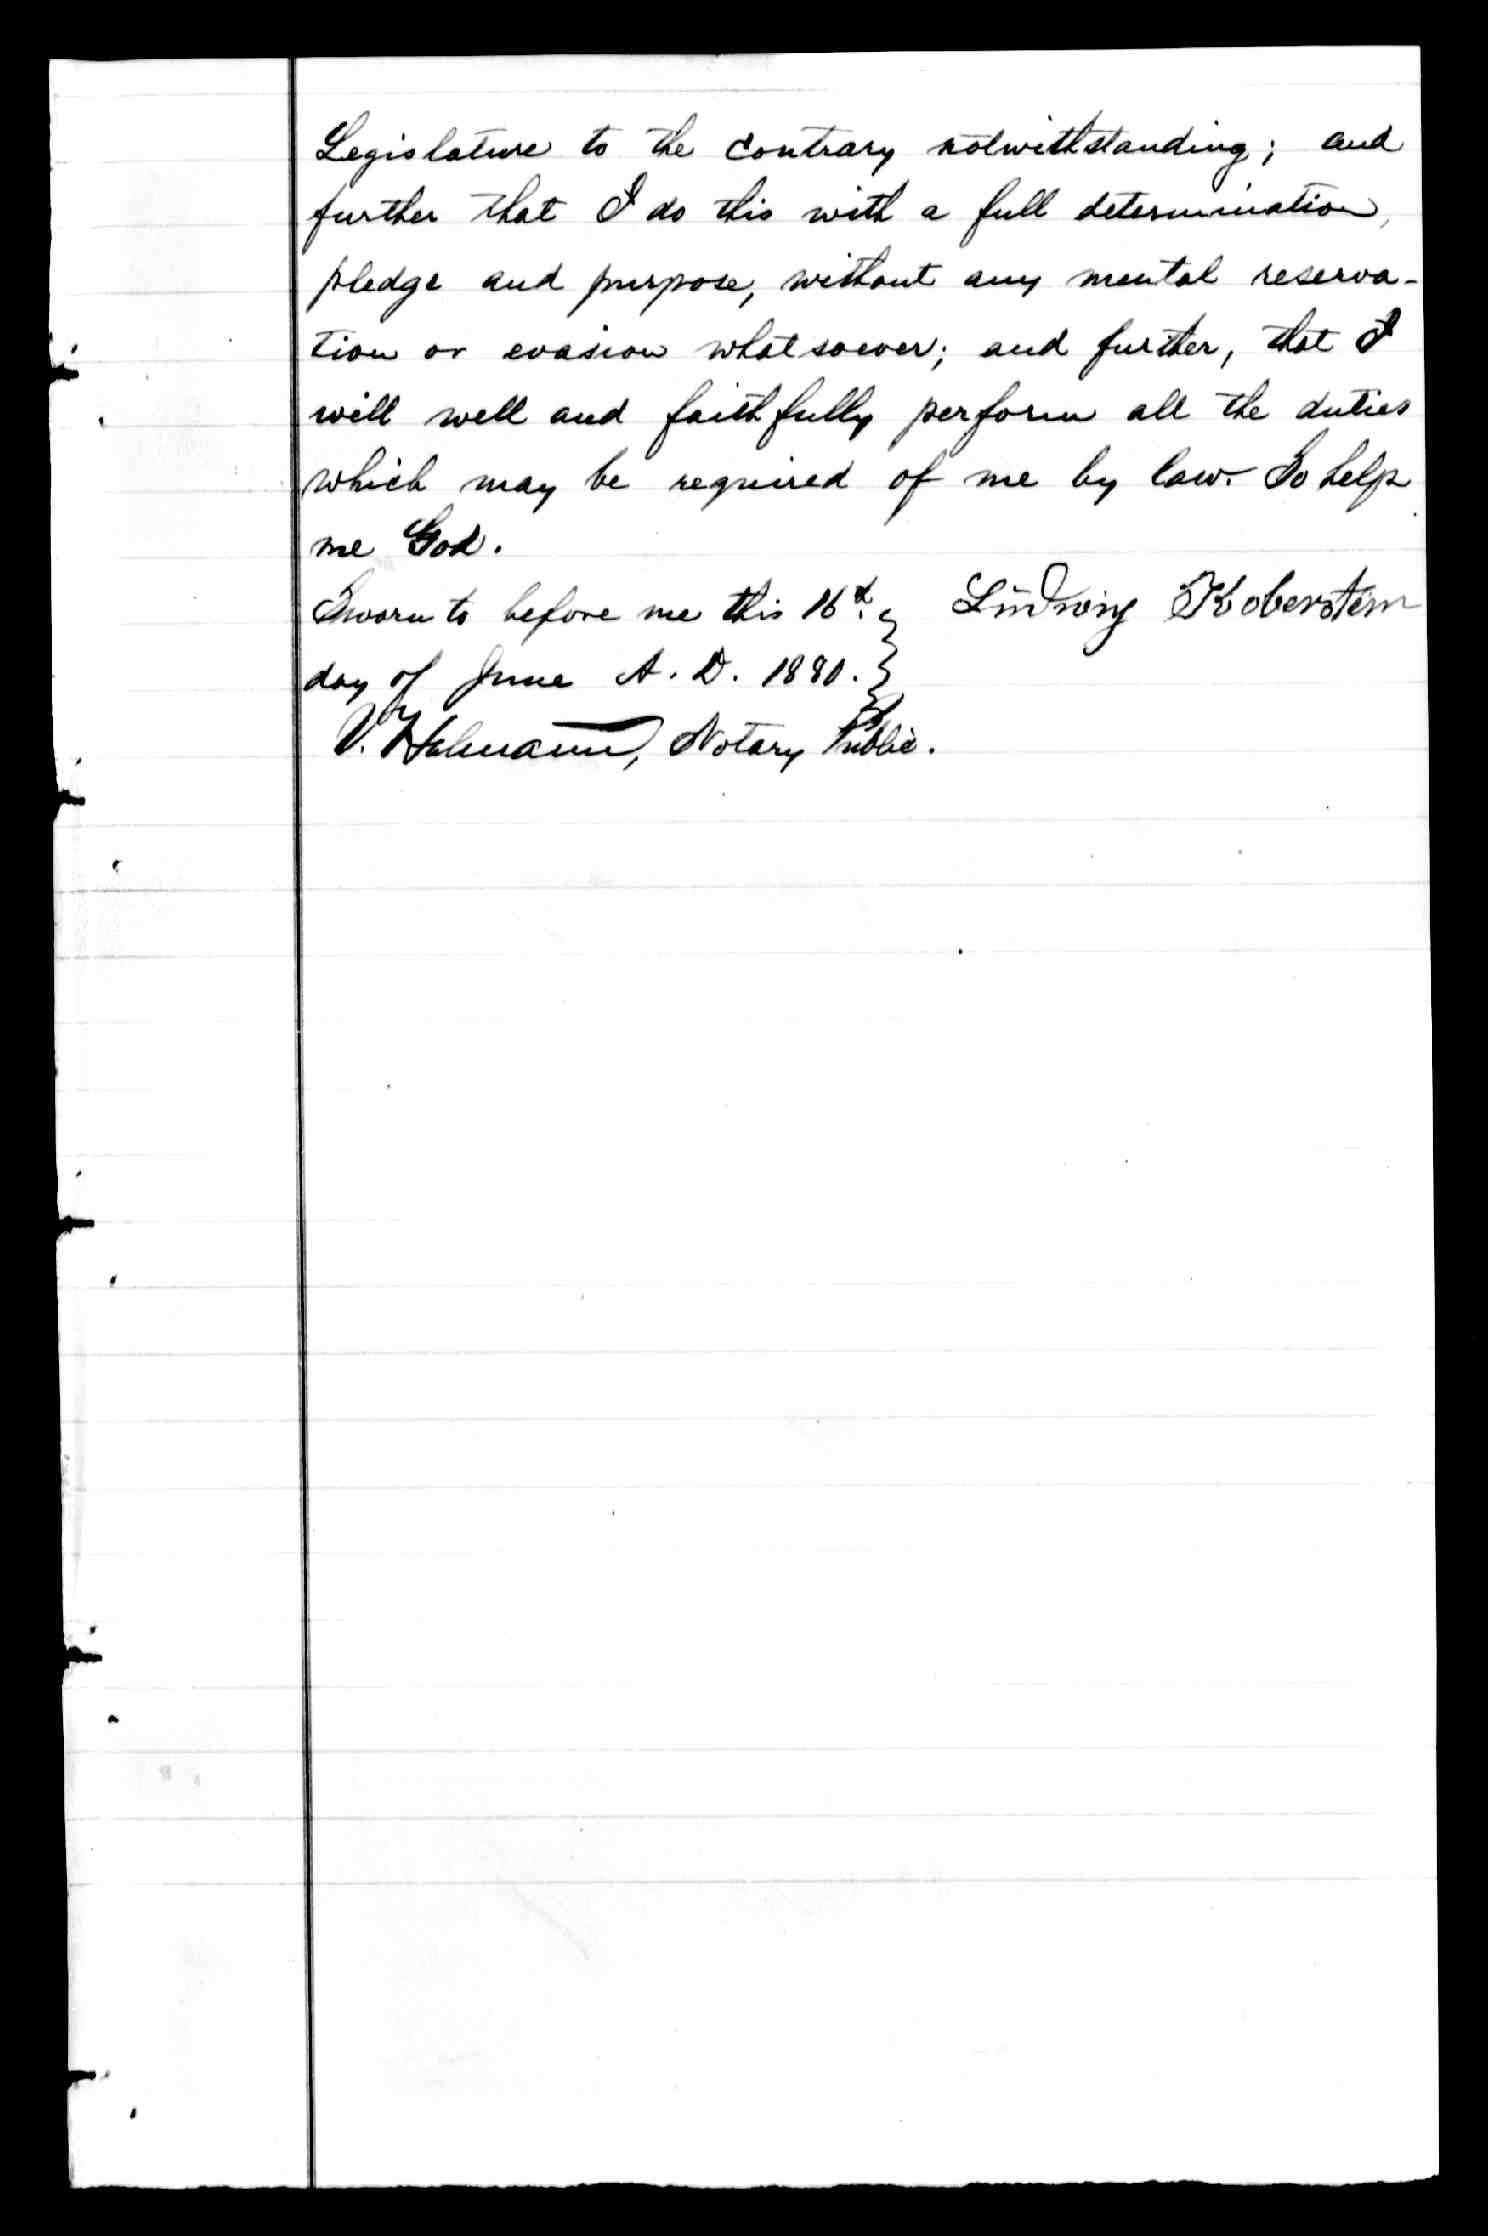 Legislature to the contrary notwithstanding; and
further that I do this with a full determination,
pledge and purpose, without any mental reserva-
tion or evasion whatsoever; and further, that I
will well and faithfully perform all the duties
which may be required of me by law. So help
me God.
Sworn to before me this 16th Ludwig Koberstein
day of June A. D. 1880.
V. Notary Public.